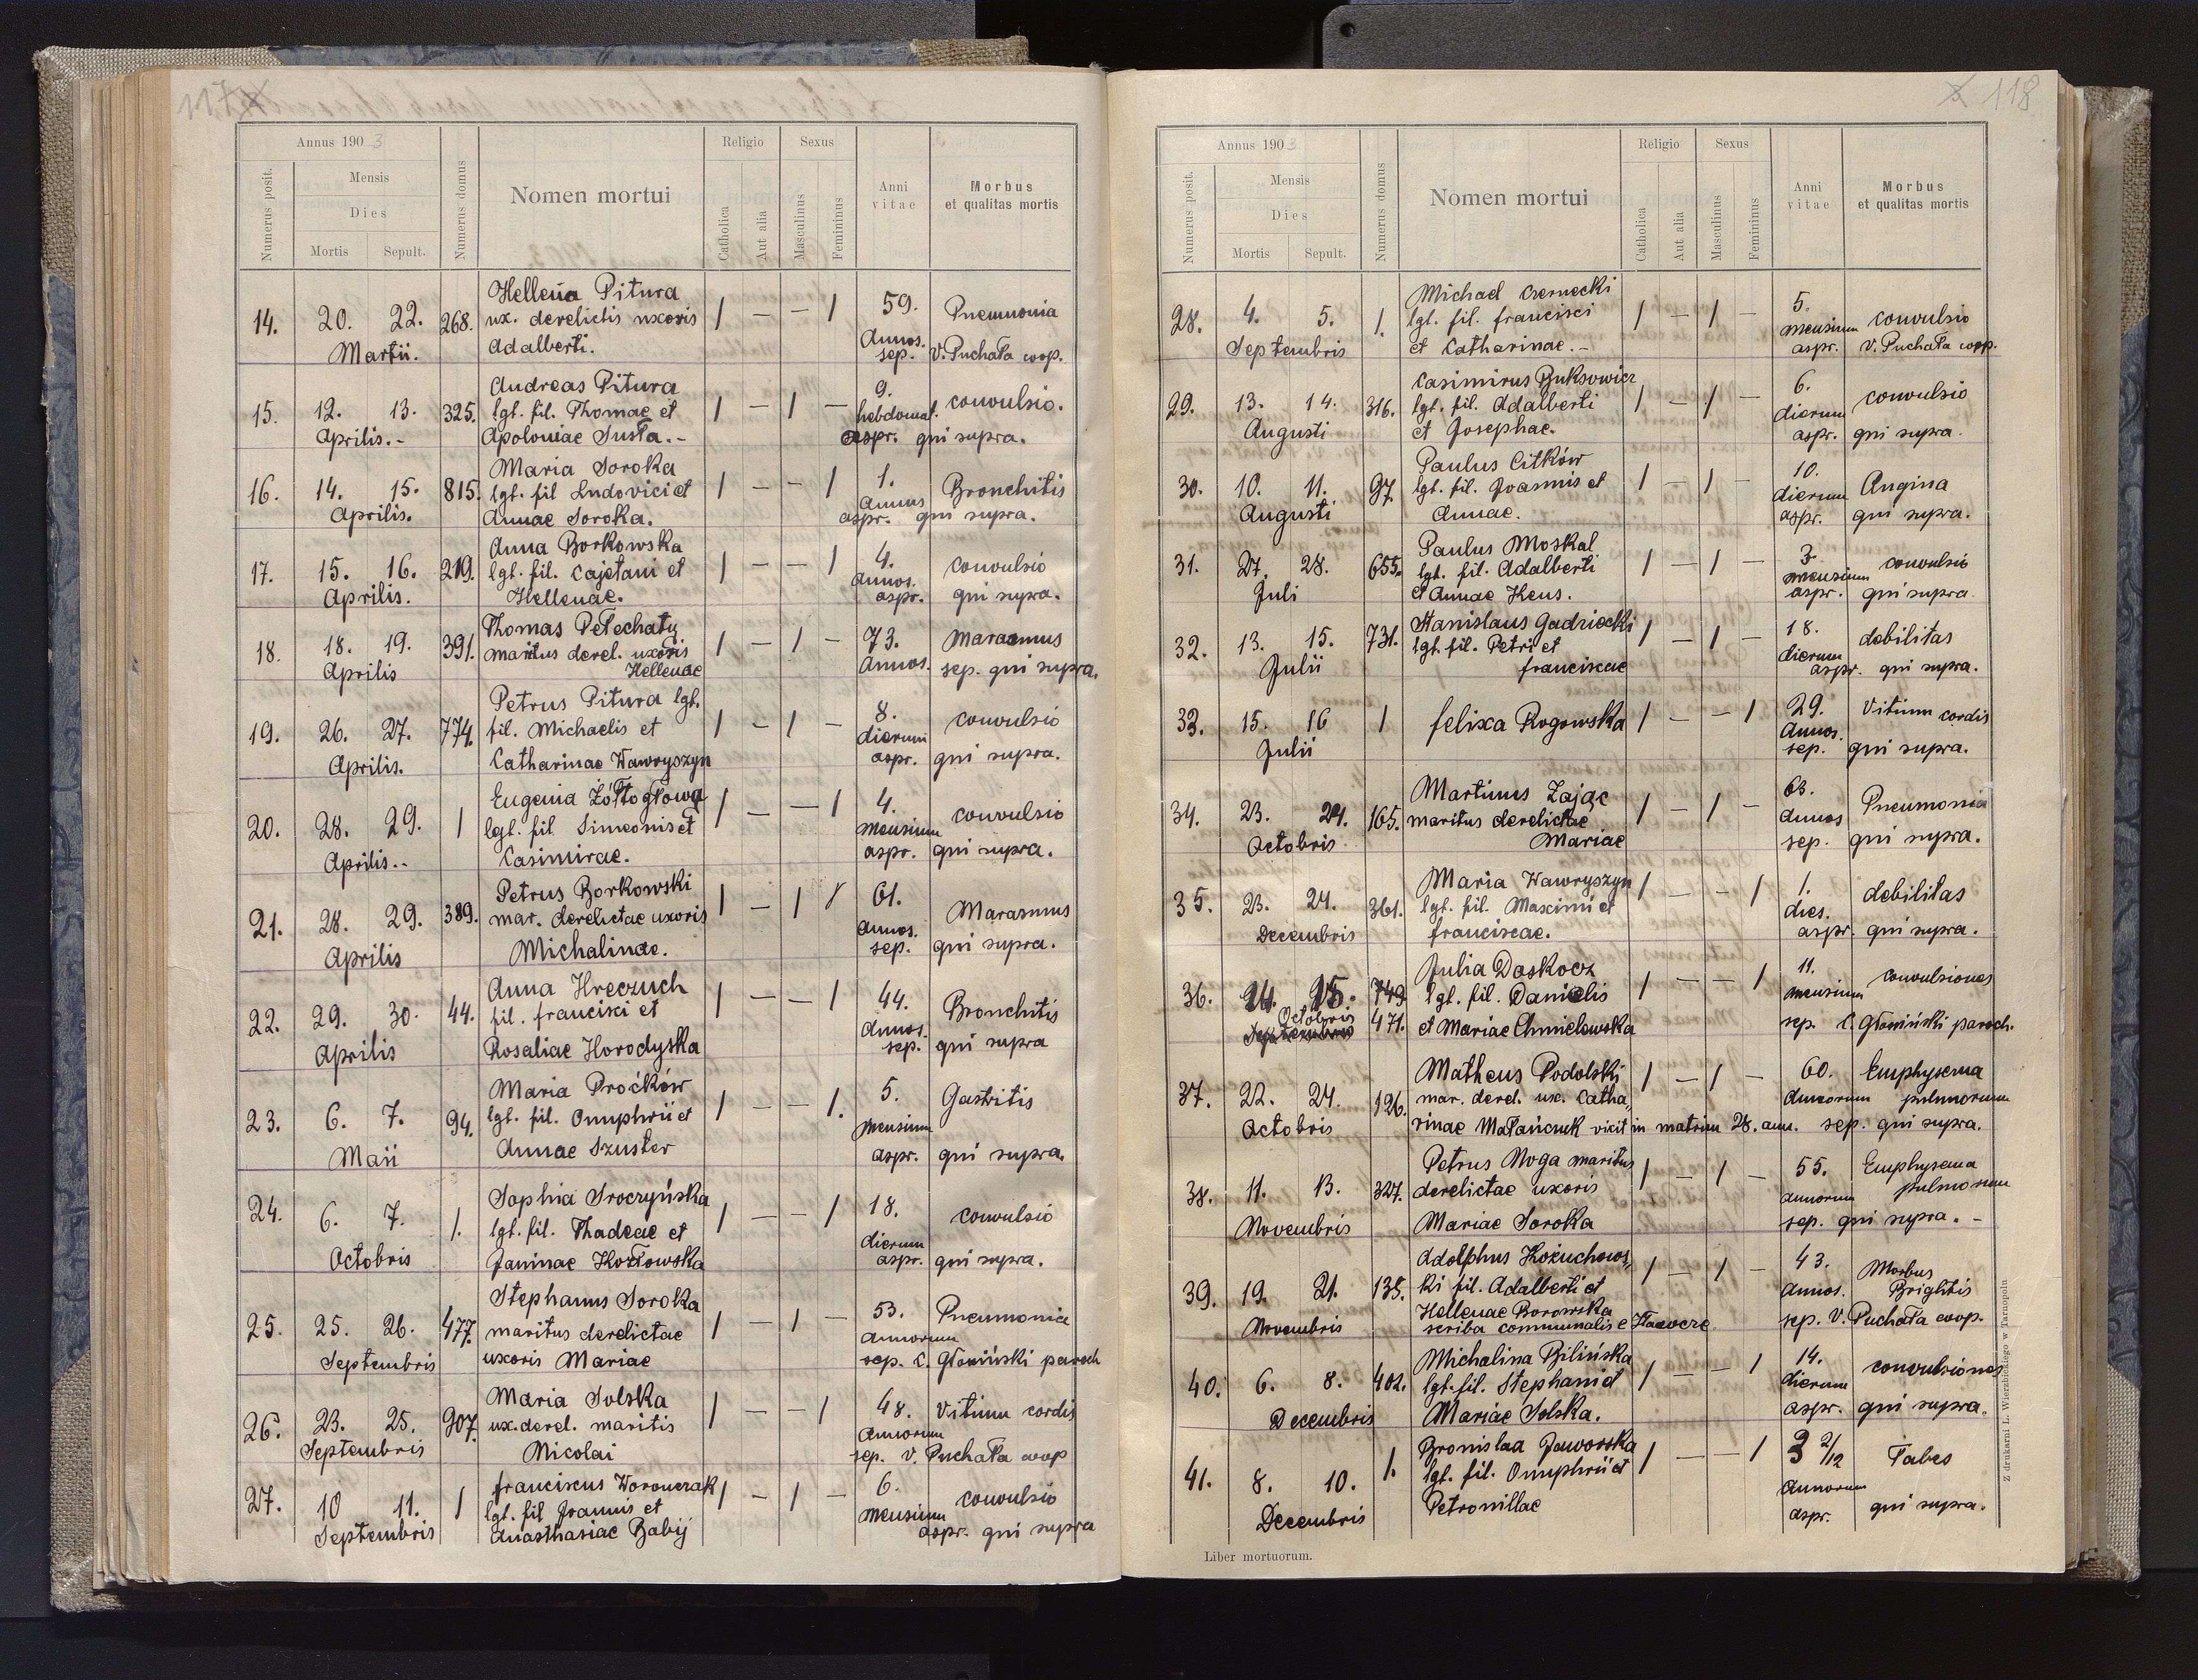 117
Annus 1903
Numerus posit.
Mensis
Dies
Mortis Sepult.
Numerus domus
Nomen mortui
Religio
Catholica
Aut alia
Sexus
Masculinus
Femininus
Anni
vitae
Morbus
et qualitas mortis
Hellena Pitura
14. 20. 22. 268. ux. derelictis uxoris / — — / 59. Pneumonia
Martii. Adalberti. Annos. sep. V. Puchała coop.
Andreas Pitura 9.
15. 12. 13. 325. lgt. fil. Thomae et / — / — hebdomat. convulsio.
Aprilis.- Apoloniae Susła.- aspr. qui supra.
Maria Soroka
16. 14. 15. 815. lgt. fil Ludovici et / — — / 1. Bronchitis
Aprilis. Annae Soroka. Annus aspr. qui supra.
Anna Borkowska
17. 15. 16. 219. lgt. fil. Cajetani et / — — / 4. convulsio
Aprilis. Hellenae. Annos. aspr. qui supra.
Thomas Pełechaty
18. 18. 19. 391. maritus derel. uxoris / — / — 73. Marasmus
Aprilis Hellenae Annos. sep. qui supra.
Petrus Pitura lgt.
19. 26. 27. 774. fil. Michaelis et / — / — 8. dierum convulsio
Aprilis. Catharinae Wawryszyn aspr. qui supra.
Eugenia Żółtogłowa
20. 28. 29. 1 lgt. fil Simeonis et / — — / 4. mensium convulsio
Aprilis.- Casimirae. aspr. qui supra.
Petrus Borkowski
21. 28. 29. 389. mar. derelictae uxoris / — / 61. Marasmus
Aprilis Michalinae. Annos. sep. qui supra.
Anna Hreczuch
22. 29. 30. 44. fil. francisci et / — — / 44. Bronchitis
Aprilis Rosaliae Horodyska Annos. sep. qui supra
Maria Proćków
23. 6. 7. 94. lgt. fil. Onuphrii et / — — /. 5. mensium Gastritis
Maii Annae Szuster aspr. qui supra.
Sophia Sroczyńska
24. 6. 7. 1. lgt. fil. Thadeae et / — — / 18. convulsio
Octobris Janinae Kozłowska dierum aspr. qui supra.
Stephanus Soroka
25. 25. 26. 477. maritus derelictae / — / — 53. Pneumonia
Septembris uxoris Mariae annorum sep. C. Głomiński paroch
Maria Solska
26. 23. 25. 907. ux. derel. maritis / — — / 48. Vitium cordis
Septembris Nicolai Annorum sep. V. Puchała coop
franciscus Woronczak
27. 10 11. 1 lgt. fil Joannis et / — / — 6. mensium convulsio
Septembris Anasthasiae Babij aspr. qui supra
118
Annus 1903
Numerus posit.
Mensis
Dies
Mortis Sepult.
Numerus domus
Nomen mortui
Religio
Catholica
Aut alia
Sexus
Masculinus
Femininus
Anni
vitae
Morbus
et qualitas mortis
Michael Czernecki
28. 4. 5. 1. lgt. fil. francisci / — / — 5. mensium convulsio
Septembris et Catharinae.- aspr. V. Puchała coop.
Casimirus Buksowicz
29. 13. 14. 316. lgt. fil. Adalberti / — / — 6. dierum convulsio
Augusti et Josephae. aspr. qui supra.
Paulus Citków
30. 10. 11. 97. lgt. fil. Joannis et / — / — 10. dierum Angina
Augusti Annae. aspr. qui supra.
Paulus Moskal
31. 27. 28. 655. lgt. fil. Adalberti / — / — 3. mensium convulsio
Juli et Annae Kens. aspr. qui supra.
Stanislaus Gadziecki
32. 13. 15. 731. lgt. fil. Petri et / — / — 18. dierum debilitas
Julii franciscae aspr. qui supra.
33. 15. 16 1 felixa Rogowska / — — / 29. Vitium cordis
Julii Annos. sep. qui supra.
Martinus Zając
34. 23. 24. 165. maritus derelictae / — / — 63. Pneumonia
Octobris Mariae Annos sep. qui supra.
Maria Wawryszyn
35. 23. 24. 361. lgt. fil. Maximi et / — — / 1. dies. debilitas
Decembris franciscae. aspr. qui supra.
Julia Doskocz
36. 24. 25. 749 lgt. fil. Danielis / — — / 11. mensium convulsiones
Octobris Septembris 471. et Mariae Chmielowska sep. C. Głomiński paroch.
Matheus Podolski
37. 22. 24. 126. mar. derel. ux. Catha„ / — / — 60. Emphysema
Octobris rinae Małańczuk vixit in matrim 28. ann. annorum pulmonum sep. qui supra.
Petrus Noga maritus
38. 11. 13. 327. derelictae uxoris / — / — 55. Emphysema
Novembris Mariae Soroka annorum pulmonum sep. qui supra.-
Adolphus Kożuchows„
39. 19. 21. 135. ki fil. Adalberti et / — / — 43. Morbus
Novembris Hellenae Borowska Annos. Brightis
scriba communalis e sep. V. Puchała coop.
Michalina Bilińska
40. 6. 8. 402. lgt. fil. Stephani et / — — / 14. dierum convulsiones
Decembris Mariae Solska. aspr. qui supra.
Bronislaa Jaworska
41. 8. 10. 1. lgt. fil. Onuphrii et / — — / 3 2/12 Tabes
Decembris Petronillae Annorum aspr. qui supra.
Liber mortuorum.
Z drukarni L. Wierzbickiego w Tarnopolu